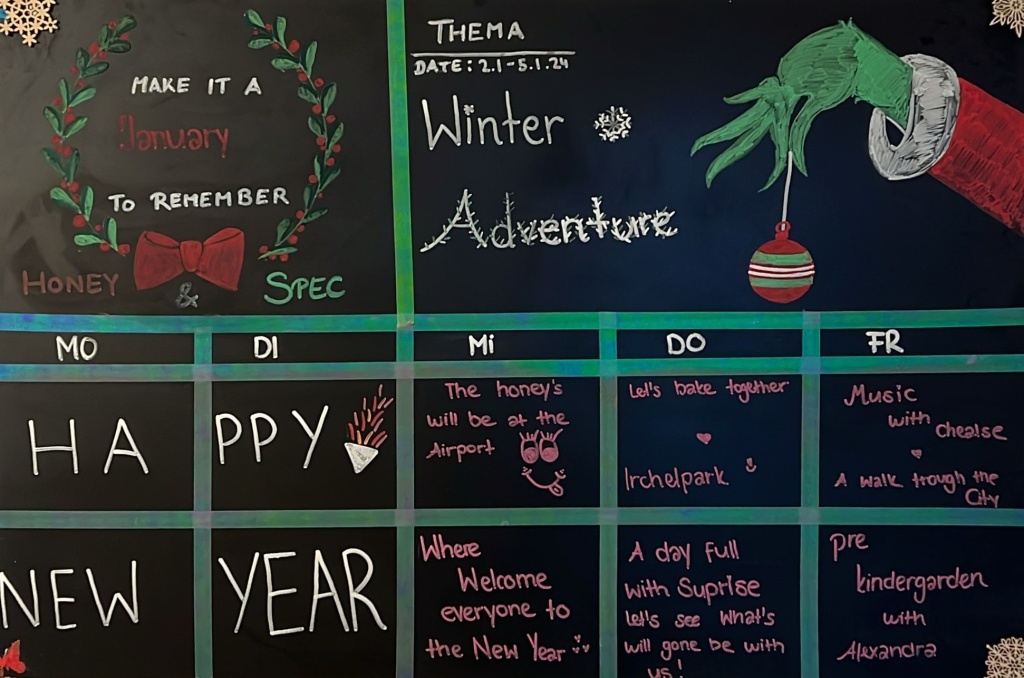 MAKE IT A
January
TO REMEMBER
HONEY & SPEC
THEMA
DATE: 2.1-5.1.24
Winter
Adventure
MO DI Mi DO FR
HA PPY
The honey's
will be at the
Airport
Let's bake together
Irchelpark
Music
with chealse
A walk trough the
City
NEW YEAR
Where
Welcome
everyone to
the New Year
A day full
with Suprise
let's see what's
will gone be with
us!
pre
kindergarden
with
Alexandra